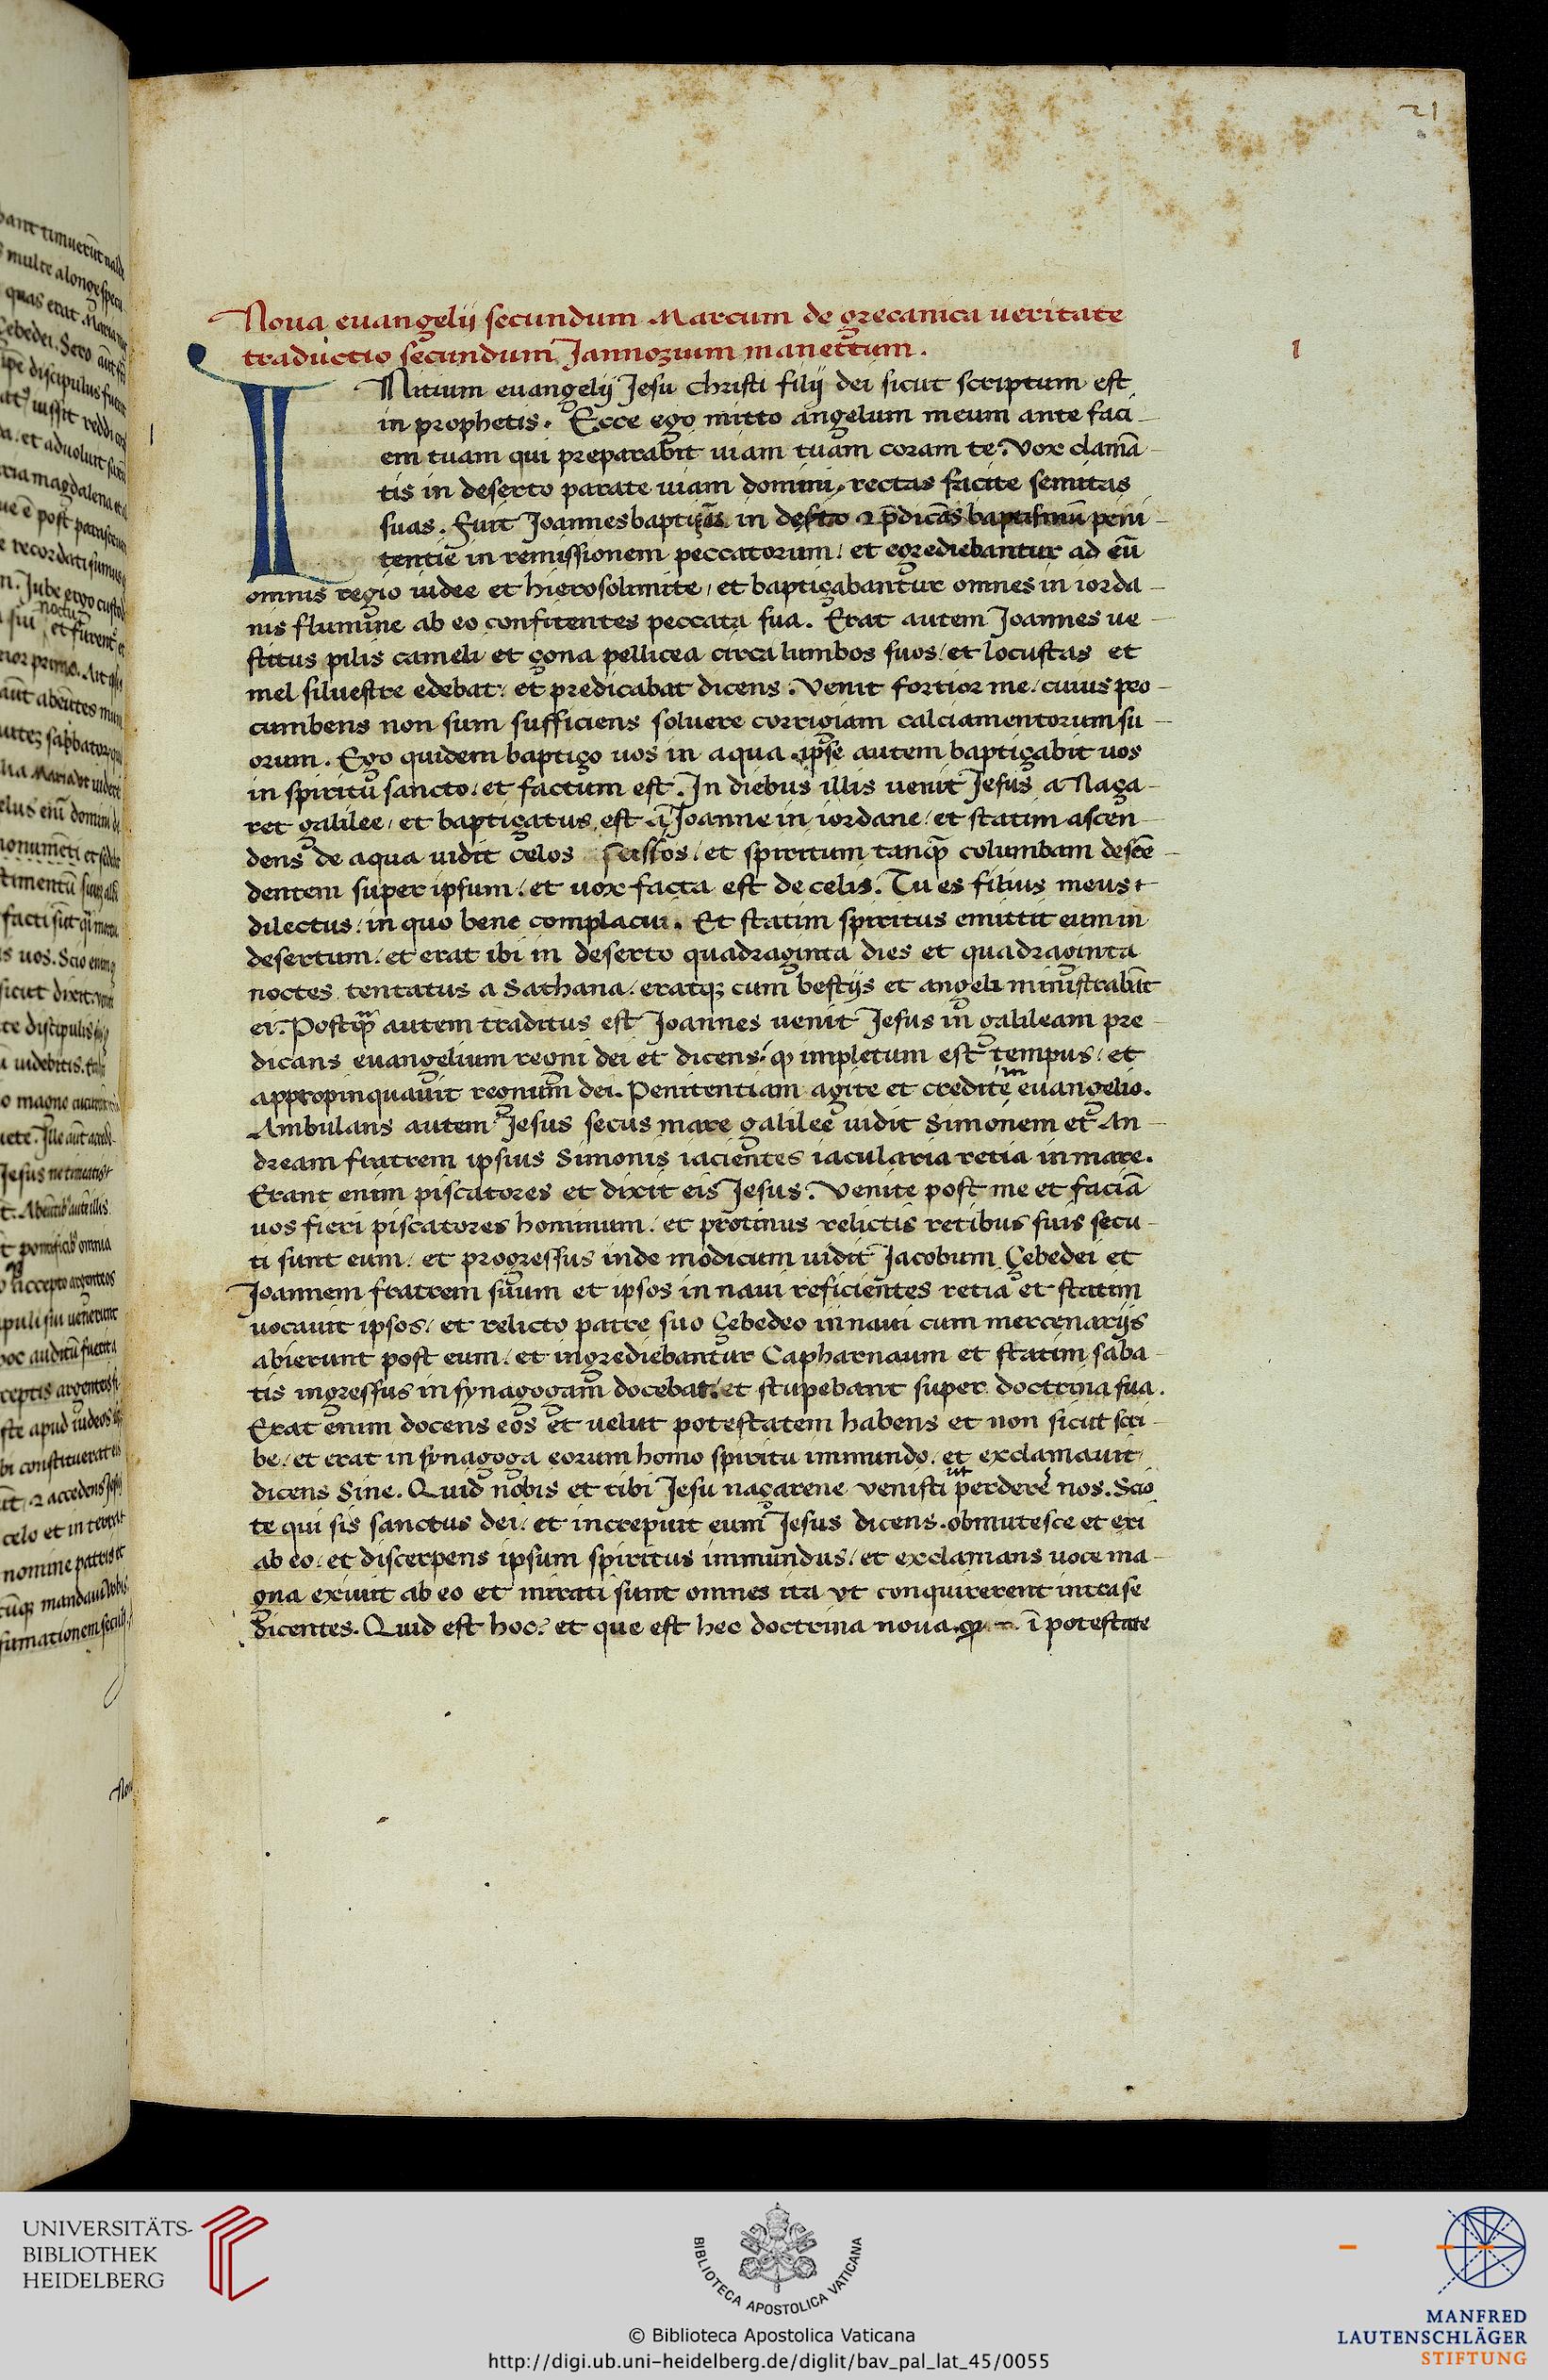 21
Noua euangelij secundum Marcum de grecanica ueritate
traductio secundum Iannozium manettum.
I
INitium euangelij Jesu Christi filij dei sicut scriptum est
in prophetis. Ecce ego mitto angelum meum ante faci-
em tuam qui preparabit uiam tuam coram te. Vox clamā-
tis in deserto parate uiam domini, rectas facite semitas
suas. Fuit Joannes baptiçās in deserto et p̄dicās baptismū peni-
tentie in remissionem peccatorum: et egrediebantur ad eū
omnis regio iudee et hierosolimite, et baptiçabantur omnes in iorda-
nis flumine ab eo confitentes peccata sua. Erat autem Joannes ue-
stitus pilis cameli et çona pellicea circa lumbos suos: et locustas et
mel siluestre edebat: et predicabat dicens. Venit fortior me: cuius pro-
cumbens non sum sufficiens soluere corrigiam calciamentorum su-
orum. Ego quidem baptiço uos in aqua ipse autem baptiçabit uos
in spiritu sancto: et factum est. In diebus illis uenit Jesus a Naça-
ret galilee, et baptiçatus est a Joanne in iordane: et statim ascen-
dens de aqua uidit celos scissos: et spiritum tanq̄ columbam descē-
dentem super ipsum: et uox facta est de celis. Tu es filius meus
dilectus: in quo bene complacui. Et statim spiritus emittit eum in
desertum: et erat ibi in deserto quadraginta dies et quadraginta
noctes tentatus a Sathana: eratq; cum bestijs et angeli ministrabāt
ei. Postq̄ autem traditus est Joannes uenit Jesus in galileam pre-
dicans euangelium regni dei et dicens: qꝫ impletum est tempus: et
appropinquauit regnum dei. Penitentiam agite et credite in euangelio.
Ambulans autem Jesus secus mare galilee uidit Simonem et An-
dream fratrem ipsius Simonis iacientes iacularia retia in mare.
Erant enim piscatores et dixit eis Jesus. Venite post me et faciā
uos fieri piscatores hominum: et protinus relictis retibus suis secu-
ti sunt eum: et progressus inde modicum uidit Jacobum Çebedei et
Joannem fratrem suum et ipsos in naui reficientes retia et statim
uocauit ipsos: et relicto patre suo Çebedeo in naui cum mercenarijs
abierunt post eum: et ingrediebantur Capharnaum et statim saba-
tis ingressus in synagogam docebat: et stupebant super doctrina sua.
Erat enim docens eos et uelut potestatem habens et non sicut scri-
be: et erat in synagoga eorum homo spiritu immundo: et exclamauit
dicens Sine. Quid nobis et tibi Jesu naçarene venisti ut perderes nos. Scio
te qui sis sanctus dei: et increpuit eum Jesus dicens. obmutesce et exi
ab eo: et discerpens ipsum spiritus immundus: et exclamans uoce ma-
gna exiuit ab eo et mirati sunt omnes ita vt conquirerent intra se
Dicentes. Quid est hoc? et que est hec doctrina noua. qꝫ ī potestate
UNIVERSITÄTS-
BIBLIOTHEK
HEIDELBERG
BIBLIOTECA APOSTOLICA VATICANA
© Biblioteca Apostolica Vaticana
http://digi.ub.uni-heidelberg.de/diglit/bav_pal_lat_45/0055
MANFRED
LAUTENSCHLÄGER
STIFTUNG